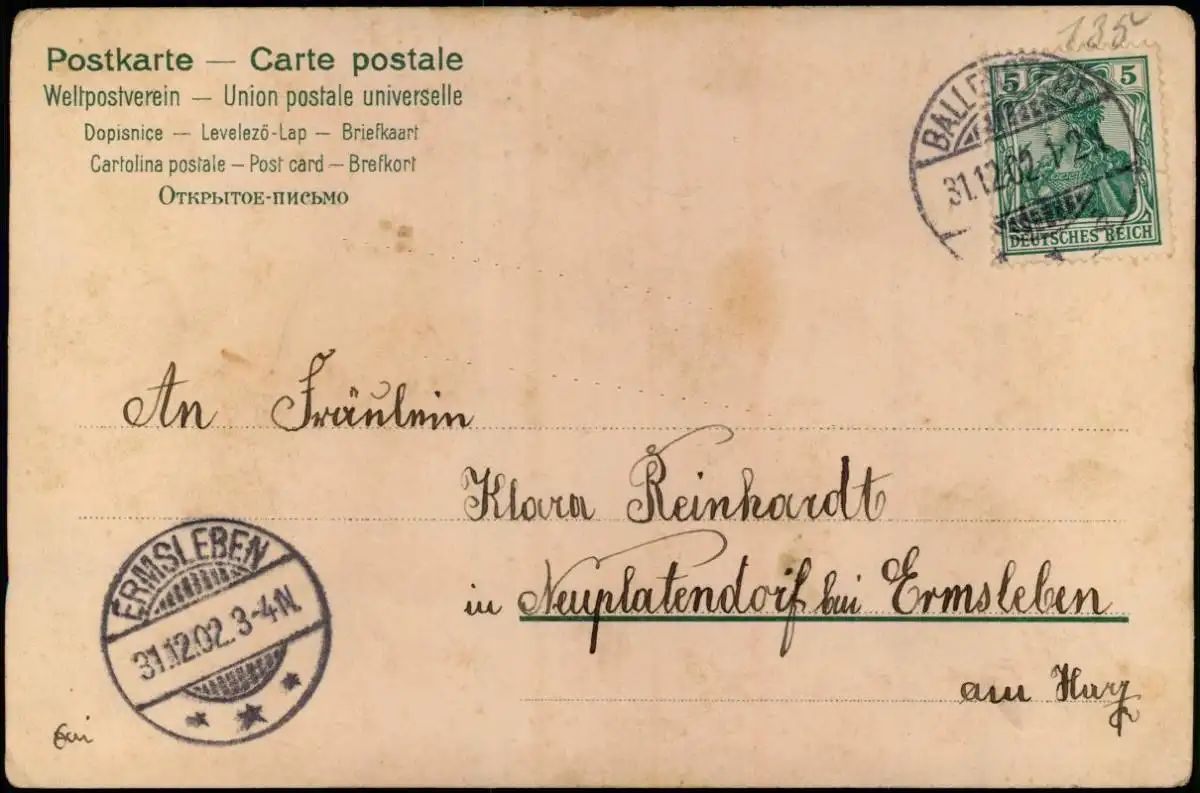 Postkarte — Carte postale
Weltpostverein — Union postale universelle
Dopisnice — Levelező-Lap — Briefkaart
Cartolina postale — Post card — Brefkort
Открытое-письмо
135
5 5
31.12.02. 1-2N
DEUTSCHES REICH
An Fräulein
Klara Reinhardt
in Neuplatendorf bei Ermsleben
am Harz
ERMSLEBEN
31.12.02. 3-4N.